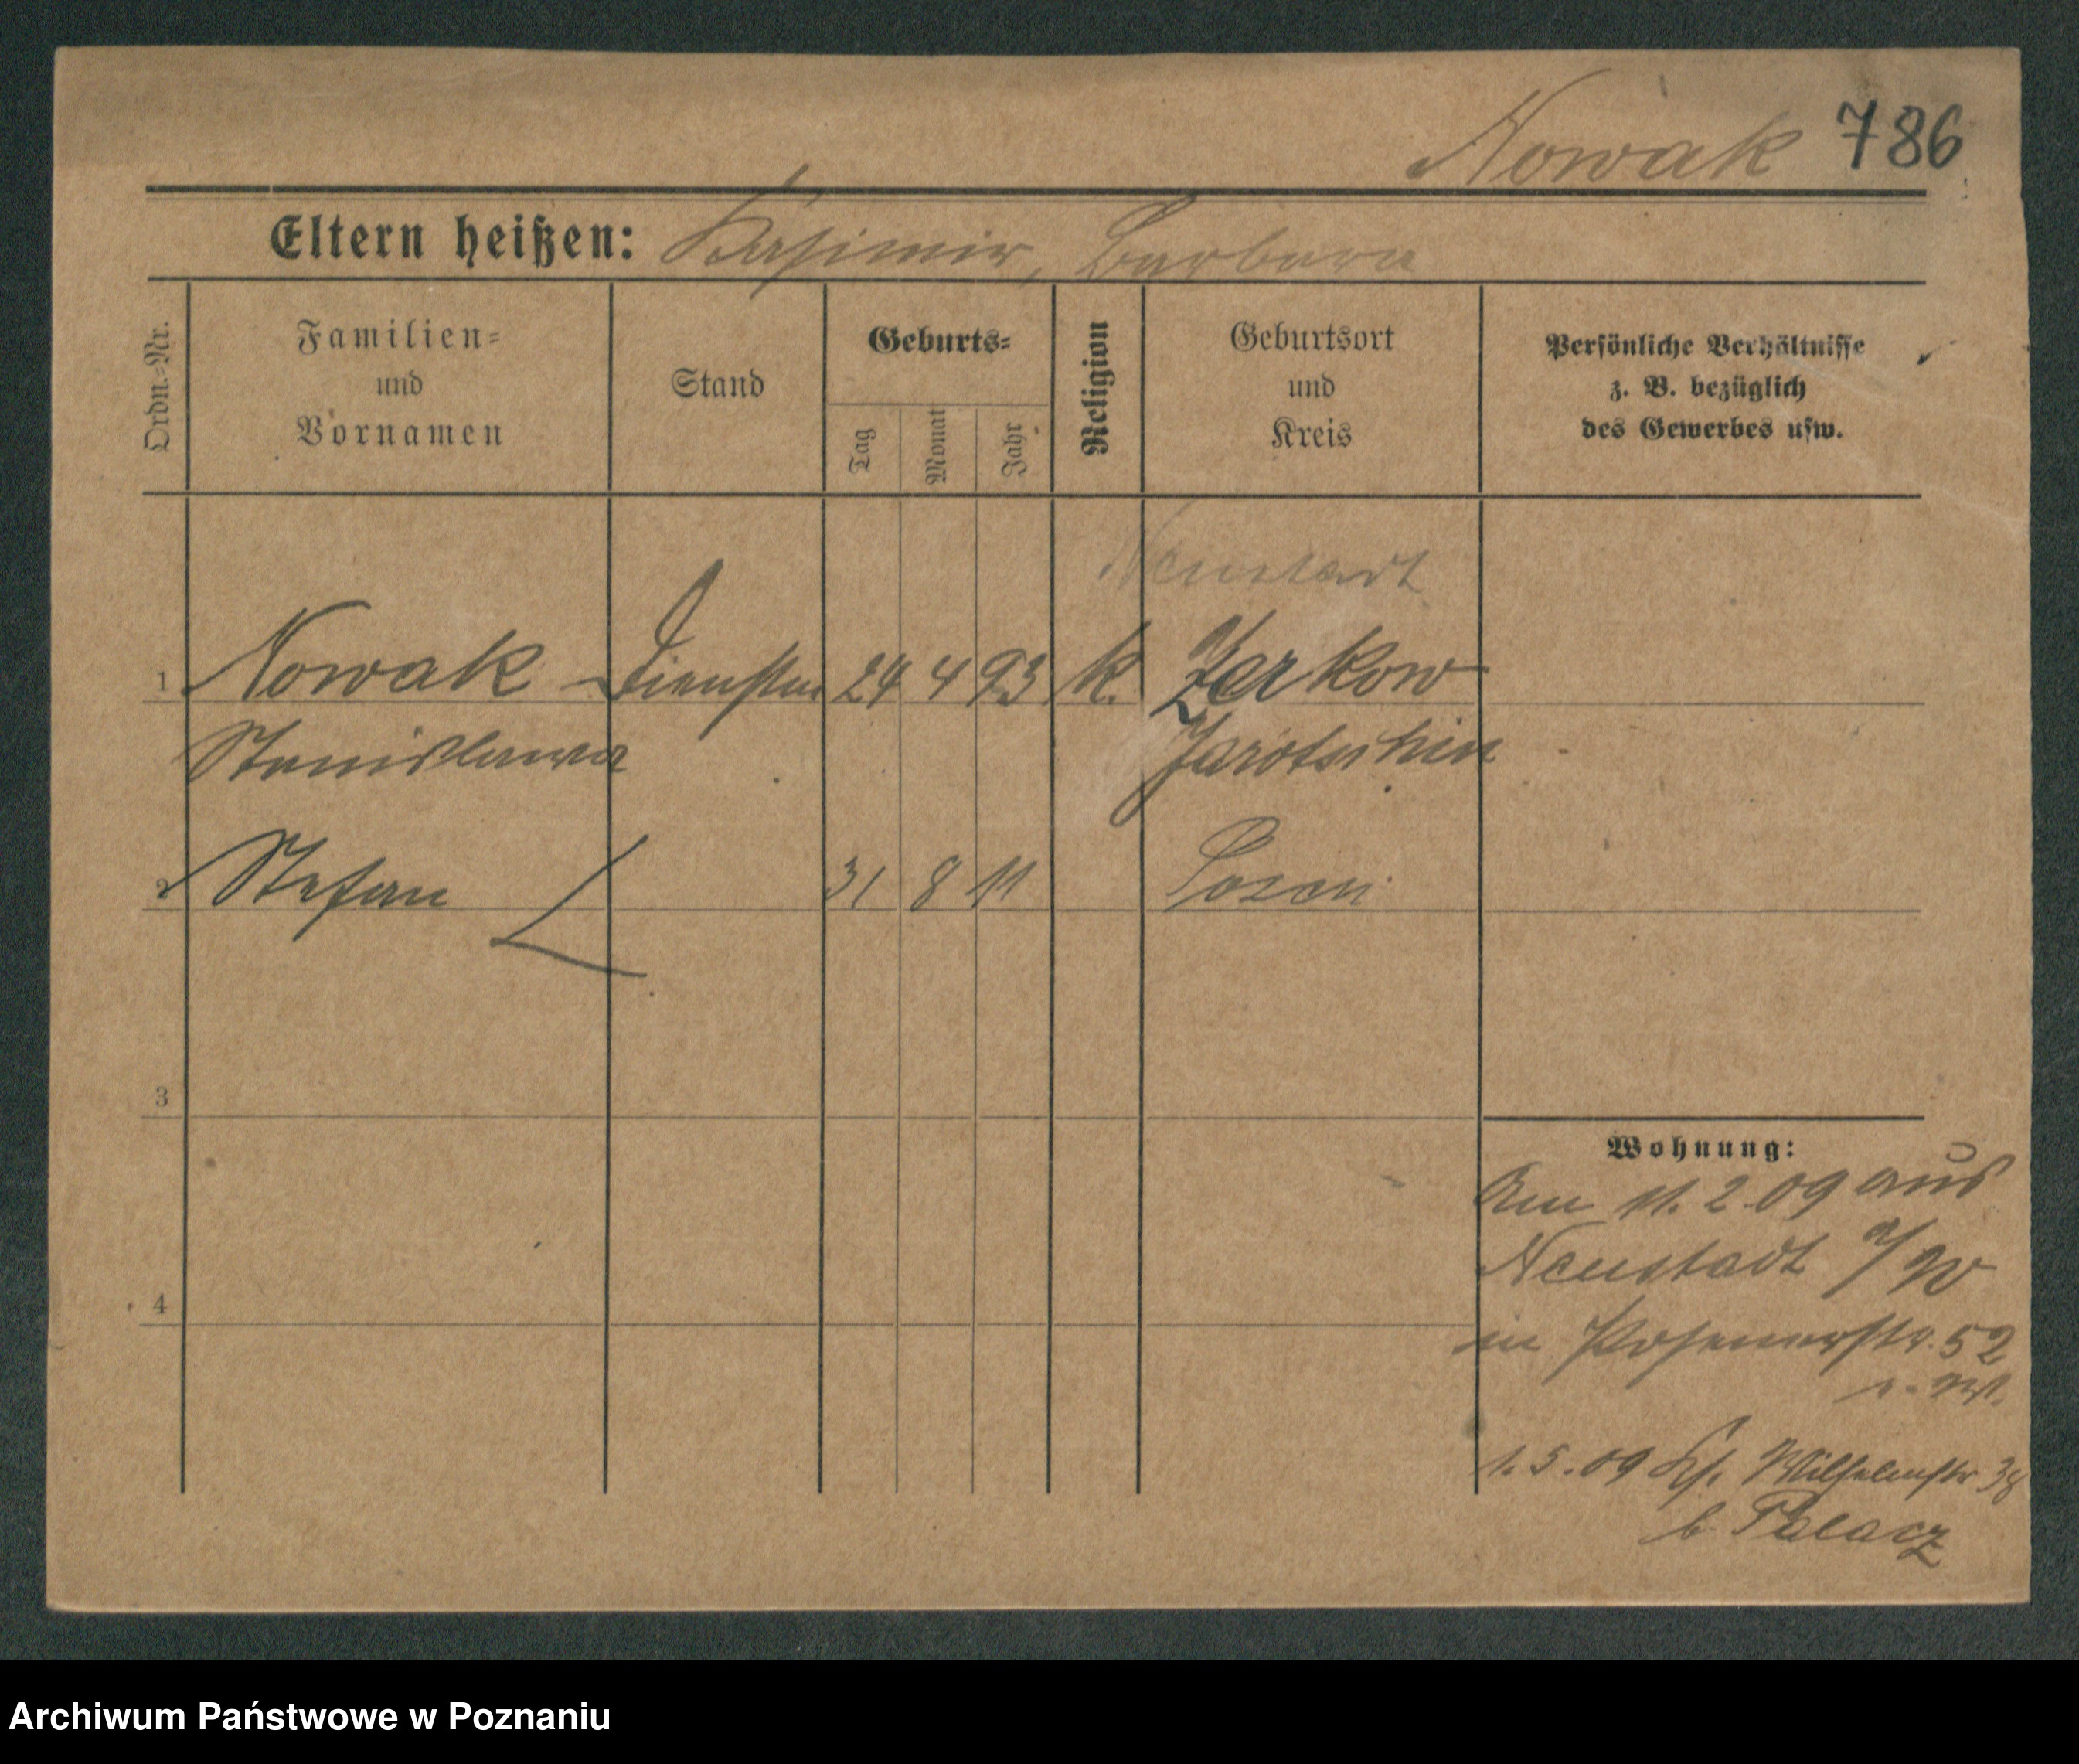 Nowak 786
Eltern heißen: Kasimir, Barbara
Ordn.-Nr.
Familien-
und
Vornamen
Stand
Geburts-
Tag
Monat
Jahr
Religion
Geburtsort
und
Kreis
Persönliche Verhältnisse
z. B. bezüglich
des Gewerbes usw.
Neustadt
1 Nowak 24 4 93 k. Zerkow
Stanislawa Jarotschin
2 Stefan 31 8 11 Posen
3
Wohnung:
Am 11. 2. 09 aus
Neustadt a/W
4
in Posenerstr. 52
1. 5. 09 Wilhelmstr 38
b Palacz
Archiwum Państwowe w Poznaniu